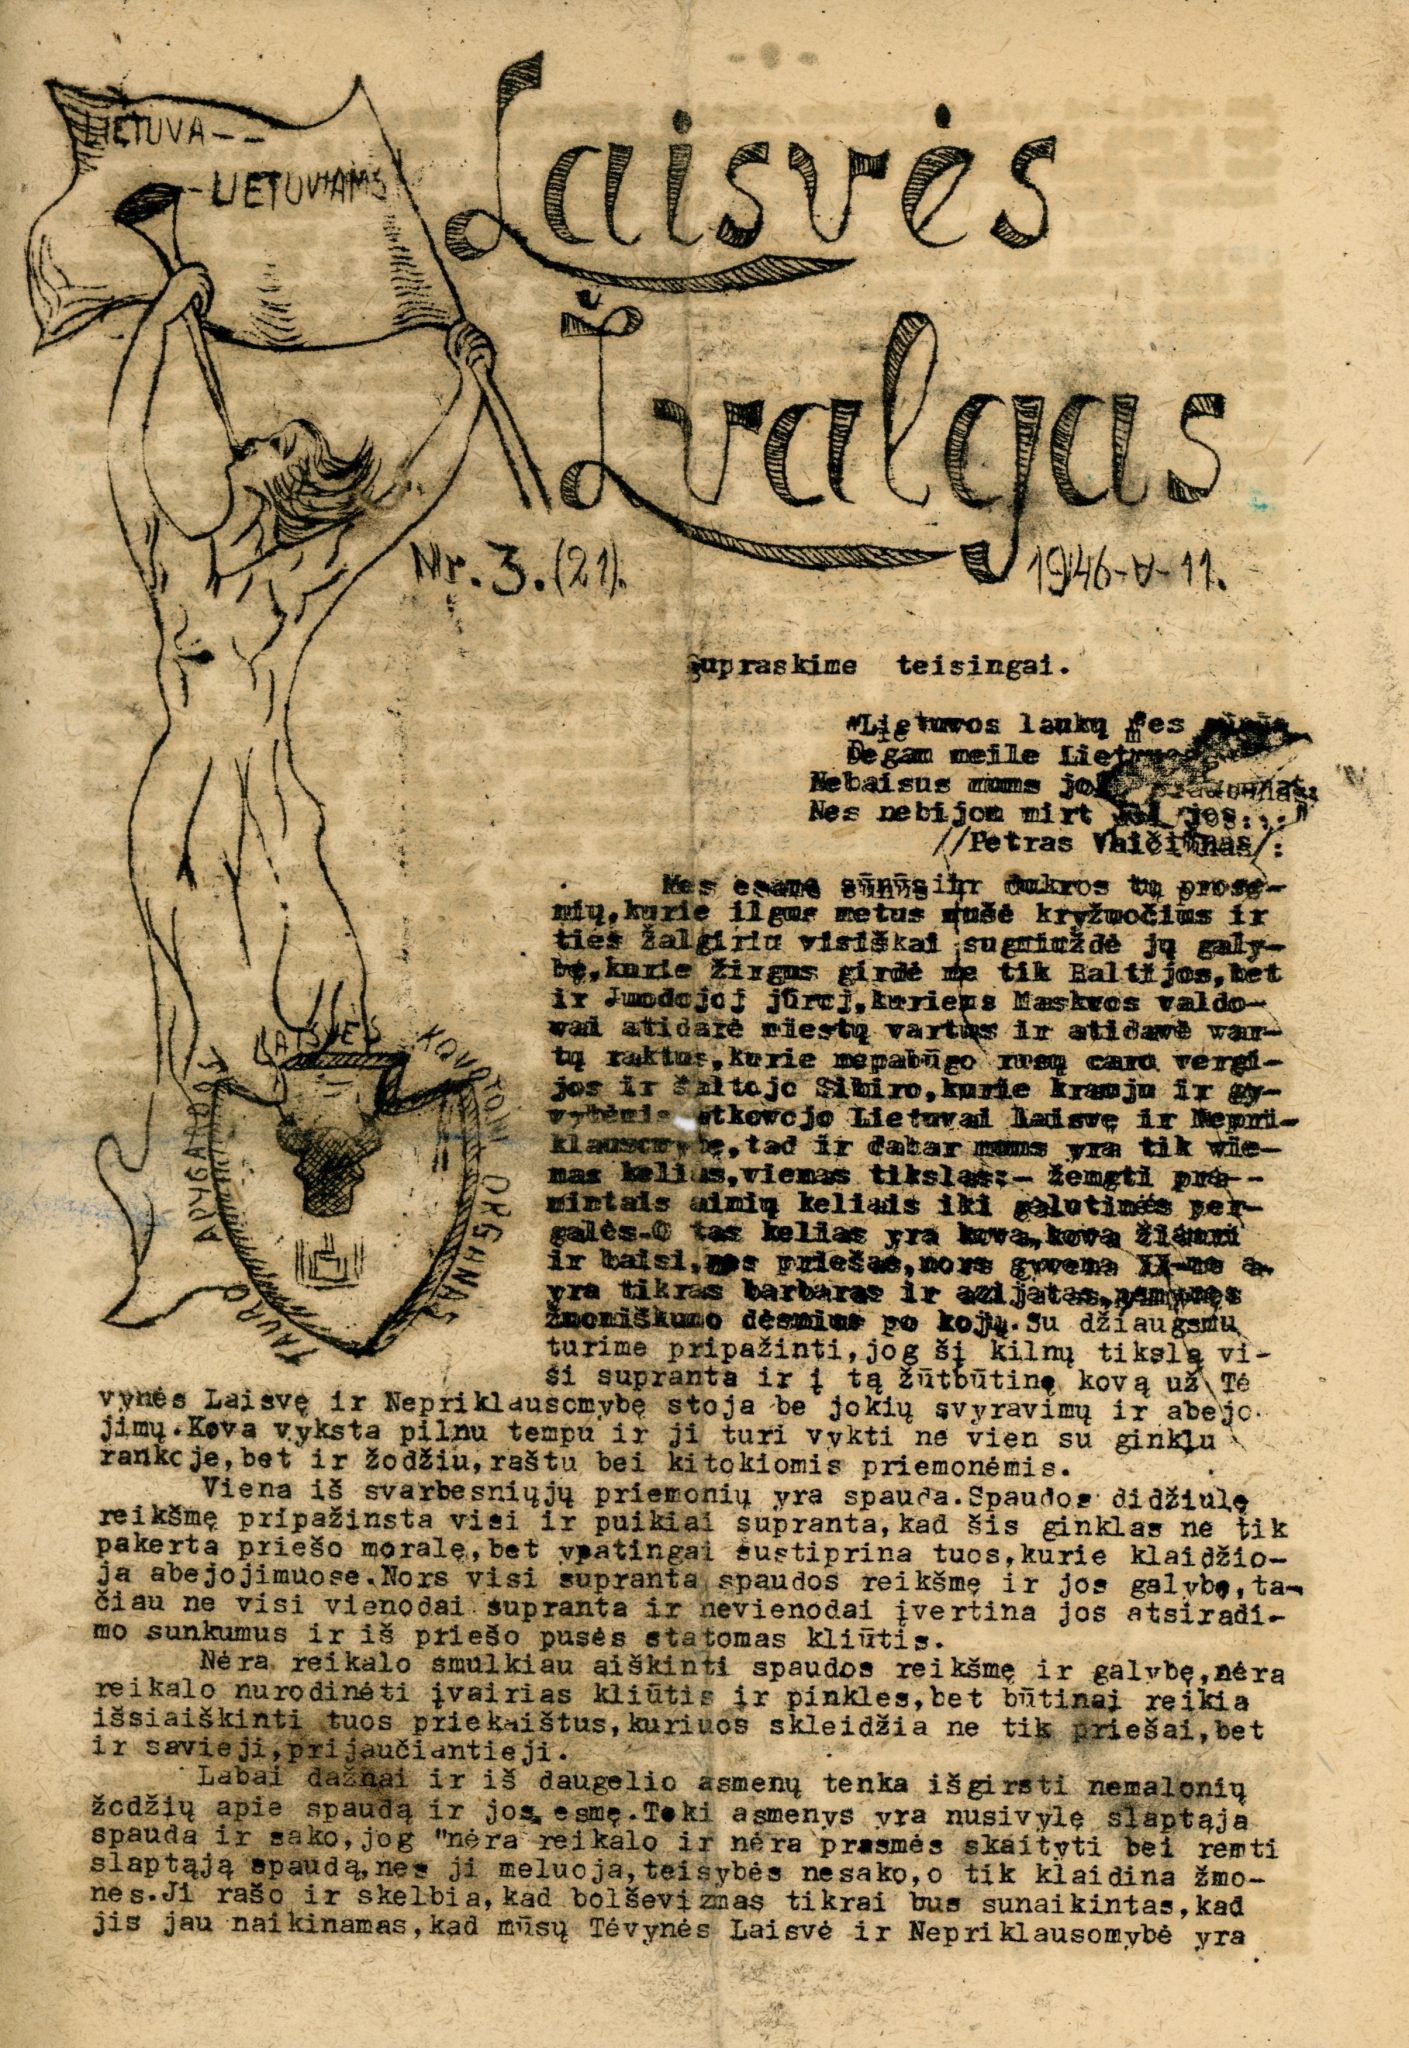 LIETUVA--
-LIETUVIAMS
Laisvės
Žvalgas
Nr. 3. (21).
1946-V-11.
LAISVĖS KOVOTOJŲ ORGANAS
TAURO APYGARDOS
Supraskime teisingai.
"Lietuvos laukų mes
Degam meile
Nebaisus mums
Nes nebijom mirt
//Petras Vaičiūnas/:
Mes esame sūnūs ir dukros tų prose-
nių,kurie ilgus metus mušė kryžuočius ir
ties Žalgiriu visiškai sugniuždė jų galy-
bę,kurie žirgus girdė ne tik Baltijos,bet
ir Juodojoj jūroj,kuriems Maskvos valdo-
vai atidarė miestų vartus ir atidavė var-
tų raktus,kurie nepabūgo rusų caro vergi-
jos ir šaltojo Sibiro,kurie krauju ir gy-
vybėmis atkovojo Lietuvai Laisvę ir Nepri-
klausomybę,tad ir dabar mums yra tik vie-
nas kelias,vienas tikslas:- žemgti pra--
mintais ainių keliais iki galutinės per-
galės.O tas kelias yra kova,kova žiauri
ir baisi,nes priešas,nors gyvena XX-me a.
yra tikras barbaras ir azijatas,
žmoniškumo dėsnius po kojų.Su džiaugsmu
turime pripažinti,jog šį kilnų tikslą vi-
si supranta ir į tą žūtbūtinę kovą už Tė
vynės Laisvę ir Nepriklausomybę stoja be jokių svyravimų ir abejo
jimų.Kova vyksta pilnu tempu ir ji turi vykti ne vien su ginklu
rankoje,bet ir žodžiu,raštu bei kitokiomis priemonėmis.
Viena iš svarbesniųjų priemonių yra spauda.Spaudos didžiulę
reikšmę pripažinsta visi ir puikiai supranta,kad šis ginklas ne tik
pakerta priešo moralę,bet ypatingai sustiprina tuos,kurie klaidžio-
ja abejojimuose.Nors visi supranta spaudos reikšmę ir jos galybę,ta-
čiau ne visi vienodai supranta ir nevienodai įvertina jos atsiradi-
mo sunkumus ir iš priešo pusės statomas kliūtis.
Nėra reikalo smulkiau aiškinti spaudos reikšmę ir galybę,nėra
reikalo nurodinėti įvairias kliūtis ir pinkles,bet būtinai reikia
išsiaiškinti tuos priekaištus,kuriuos skleidžia ne tik priešai,bet
ir savieji,prijaučiantieji.
Labai dažnai ir iš daugelio asmenų tenka išgirsti nemalonių
žodžių apie spaudą ir jos esmę.Toki asmenys yra nusivylę slaptąja
spauda ir sako,jog "nėra reikalo ir nėra prasmės skaityti bei remti
slaptąją spaudą,nes ji meluoja,teisybės nesako,o tik klaidina žmo-
nes.Ji rašo ir skelbia,kad bolševizmas tikrai bus sunaikintas,kad
jis jau naikinamas,kad mūsų Tėvynės Laisvė ir Nepriklausomybė yra